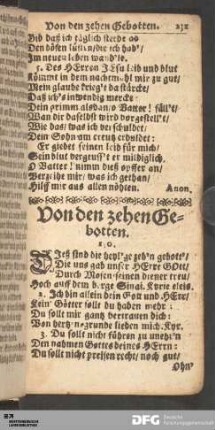 Von den zehen Gebotten. 231
Vnd daß ich täglich sterbe ab
Den bösen lüsten/die ich hab'/
Im neuen leben wand'le.
5. Des HErren JEsu leib und blut
Kömmt in dem nachtmahl mir zu gut/
Mein glaube krieg't da stärcke/
Daß ich' inwendig mercke
Dein grimm alsdan/o Vatter! fäll't/
Wan dir daselbst wird vorgestell't/
Wie das/ was ich verschuldet/
Dein Sohn am creutz erduldet:
Er giebet seinen leib für mich/
Sein blut vergeuß't er mildiglich.
O Vatter! nimm diß opffer an/
Verzeihe mir/ was ich gethan/
Hilff mir aus allen nöhten. Anon.
Von den zehen Ge-
botten.
Dieß sind die heyl'ge zeh'n gebott'/
Die uns gab unser HErre GOtt/
Durch Mosen seinen diener treu/
Hoch auff dem berge Sinai. Kyrie eleis.
2. Ich bin allein dein Gott und HErr/
Kein' Götter solt du haben mehr:
Du solt mir gantz vertrauen dich:
Von hertzengrunde lieben mich. Kyr.
3. Du solt nicht führen zu unehr'n
Den nahmen Gottes deines HErrn:
Du solt nicht preisen recht/ noch gut/
Ohn'
DFG
Deutsche
Forschungsgemeinschaft